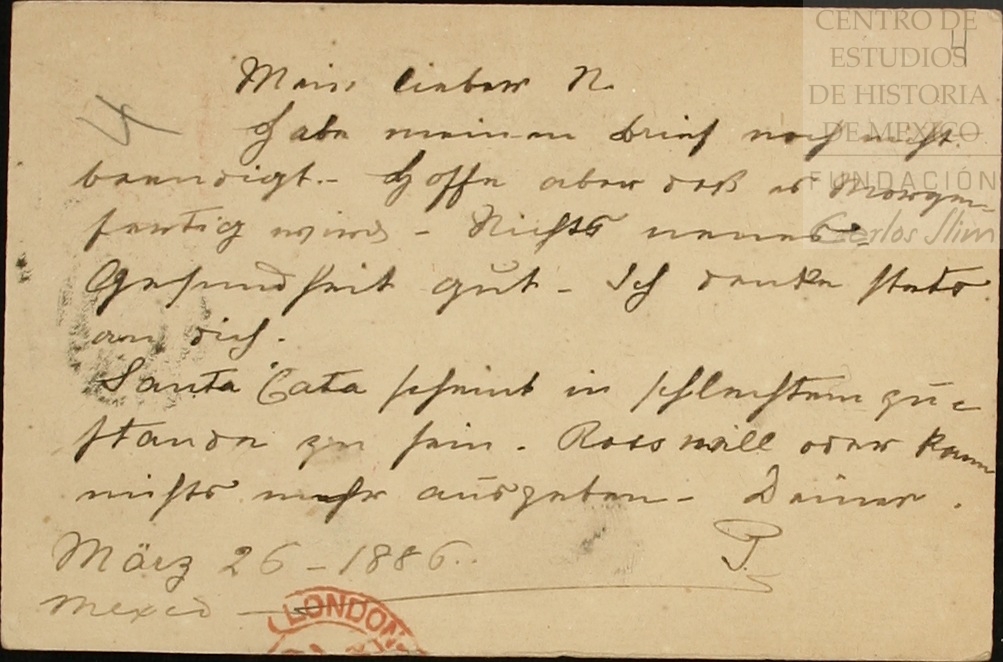 CENTRO DE
ESTUDIOS
DE HISTORIA
DE MEXICO
FUNDACIÓN
Carlos Slim
4
Mein lieber N.
Habe meinen Brief noch nicht
beendigt. - Hoffe aber daß er Morgen
fertig wird - Nichts neues -
Gesundheit gut - Ich denke stets
an dich.
Santa Cata scheint in schlechtem zu-
stande zu sein. Ross will oder kann
nichts mehr ausgeben - Deiner.
P.
März 26 - 1886.
Mexico
LONDON